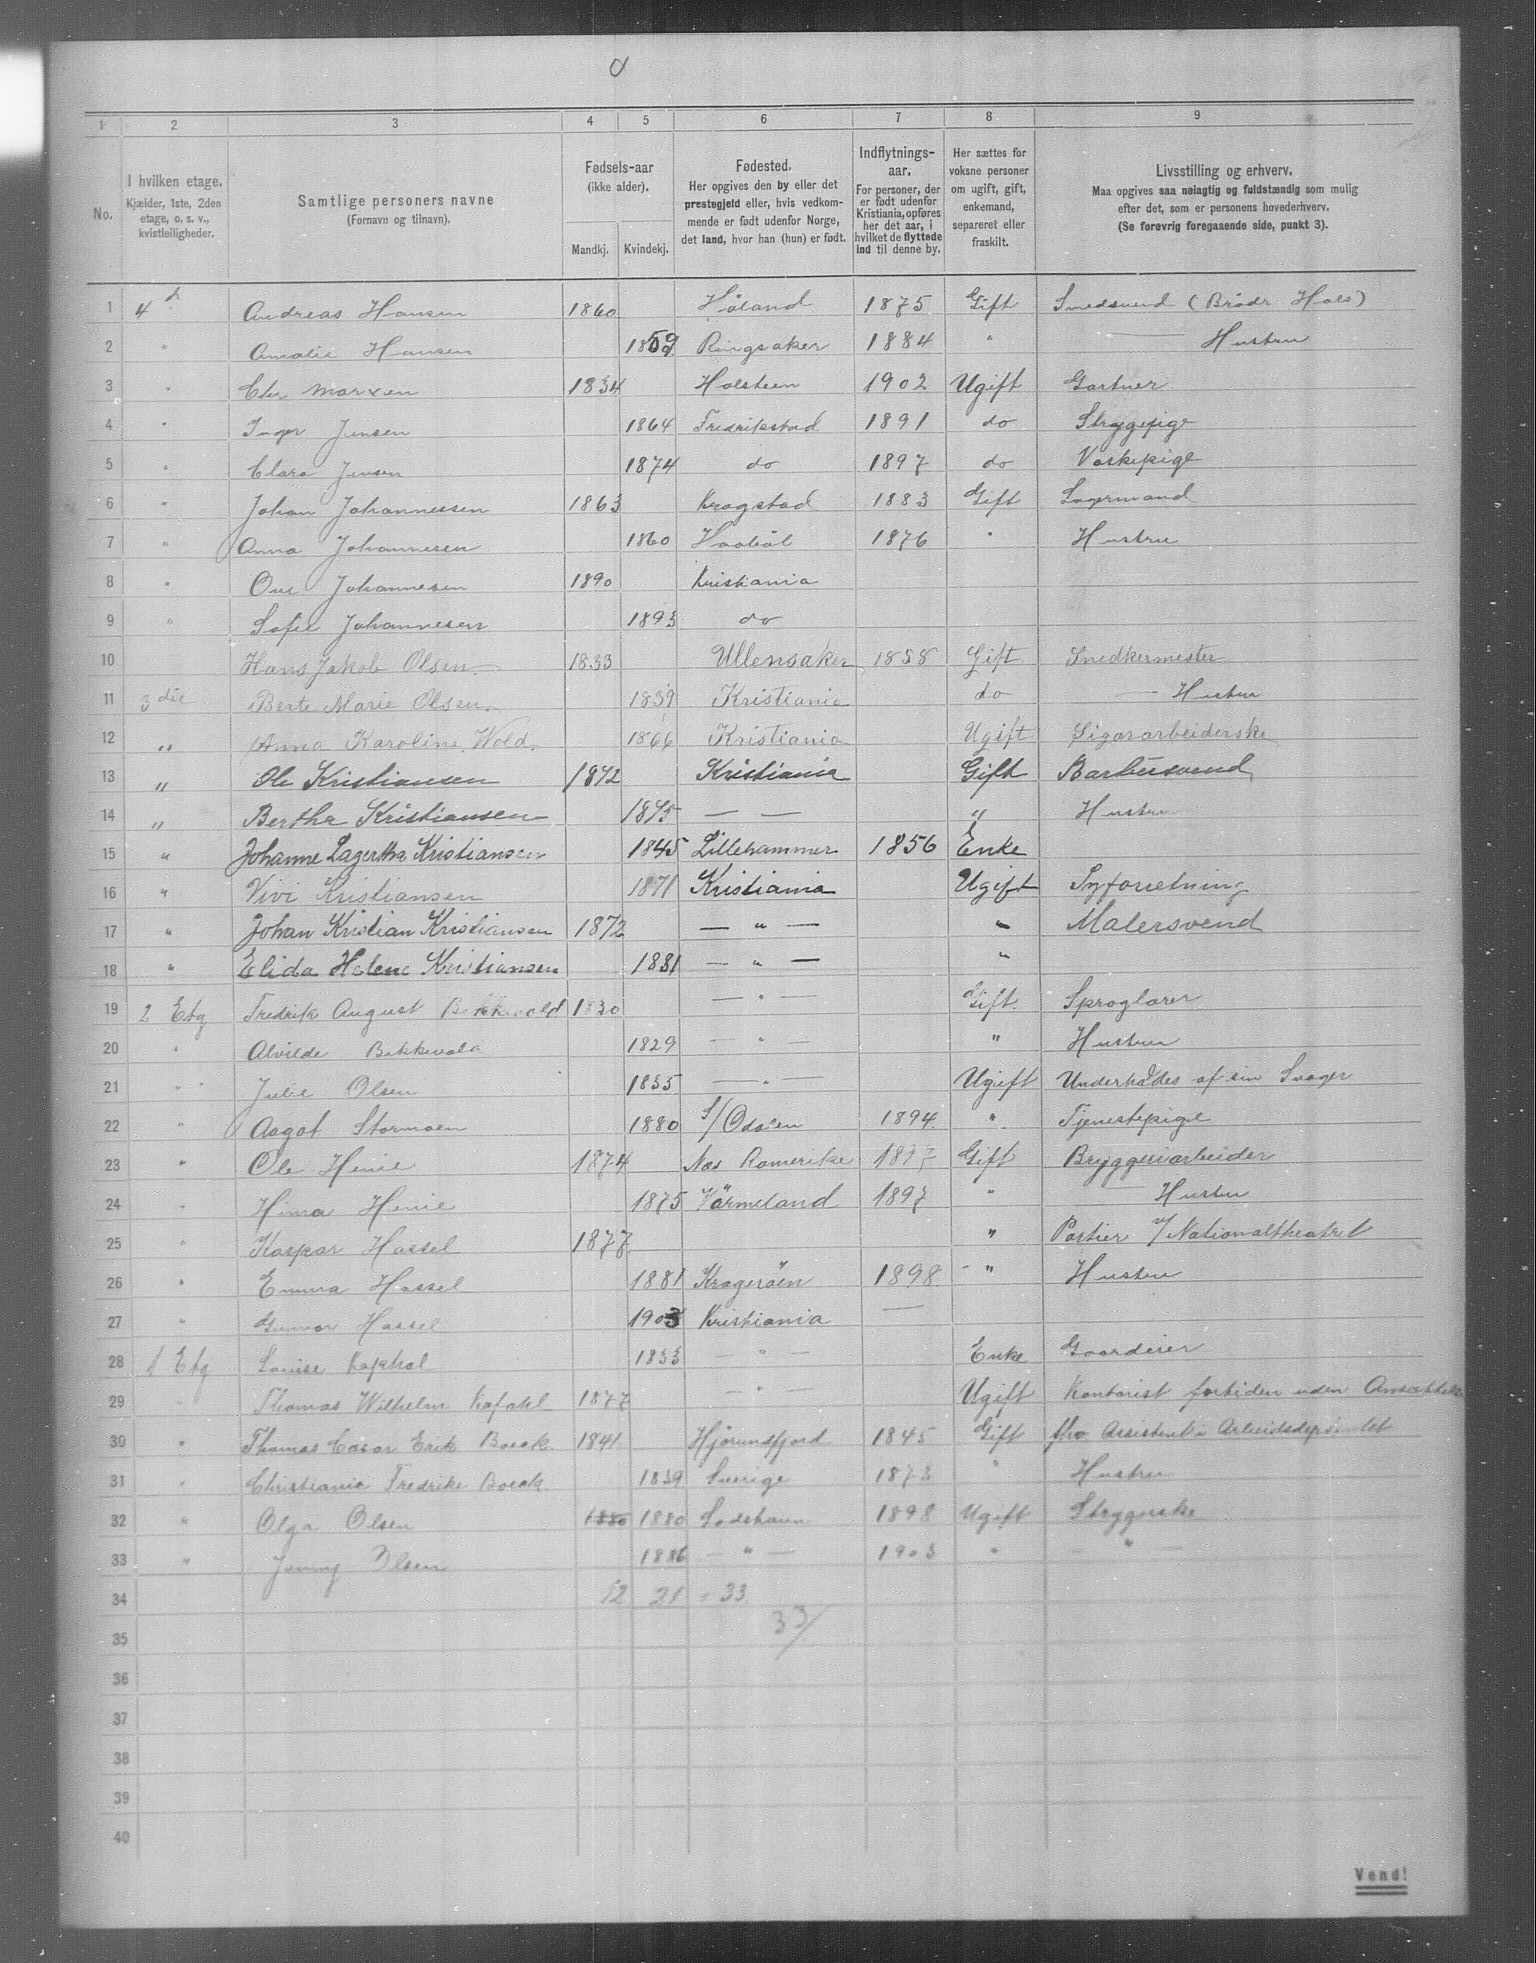 1 2 3 4 5 6 7 8 9
No. I hvilken etage. Kjælder, 1ste, 2den etage, o. s. v., kvistleiligheder. Samtlige personers navne (Fornavn og tilnavn). Fødsels-aar (ikke alder). Mandkj. Kvindekj. Fødested. Her opgives den by eller det prestegjeld eller, hvis vedkommende er født udenfor Norge, det land, hvor han (hun) er født. Indflytnings-aar. For personer, der er født udenfor Kristiania, opføres her det aar, i hvilket de flyttede ind til denne by. Her sættes for voksne personer om ugift, gift, enkemand, separeret eller fraskilt. Livsstilling og erhverv. Maa opgives saa nøiagtig og fuldstændig som mulig efter det, som er personens hovederhverv. (Se forøvrig foregaaende side, punkt 3).
1 4 Andreas Hansen 1860 Høland 1875 Gift Smedsvend (Brødr Hals)
2 " Amalie Hansen 1859 Ringsaker 1884 " Hustru
3 " Marxen 1834 Holsteen 1902 Ugift Gartner
4 " Inger Jensen 1864 Fredrikstad 1891 do Strygepige
5 " Clara Jensen 1874 do 1897 do Vaskepige
6 " Johan Johannessen 1863 Kragstad 1883 Gift Lagermand
7 " Anna Johannesen 1860 Haabøl 1876 " Hustru
8 " Ove Johannesen 1890 Kristiania
9 " Sofie Johannesen 1893 do
10 Hans Jakob Olsen 1833 Ullensaker 1858 Gift Snedkermester
11 3die Berte Marie Olsen 1839 Kristiania do — Hustru
12 " Anna Karoline Wold. 1866 Kristiania Ugift Sigararbeiderske
13 " Ole Kristiansen 1872 Kristiania Gift Barbersvend
14 " Bertha Kristiansen 1875 — — " Hustru
15 " Johanne Lagertha Kristiansen 1845 Lillehammer 1856 Enke
16 " Vivi Kristiansen 1871 Kristiania Ugift Syforretning
17 " Johan Kristian Kristiansen 1872 — " — " Malersvend
18 " Elida Helene Kristiansen 1881 — " — "
19 2 Etg Fredrik August Bekkevold 1830 — " — Gift. Sproglærer
20 " Alvilde Bekkevold 1829 — " — " Hustru
21 " " Julie Olsen 1835 — " — Ugift Underholdes af sin Svager
22 " Aagot Stormoen 1880 S/Odalen 1894 " Tjenestepige
23 " Ole Henie 1874 Nes Romerike 1897 Gift Bryggeriarbeider
24 " Henie 1875 Värmeland 1897 " — Hustru
25 " Kaspar Hassel 1877 " Portier v/Nationaltheatret
26 " Emma Hassel 1881 Kragerøen 1898 " Hustru
27 " Gunvor Hassel 1903 Kristiania —
28 1 Etg Louise Kafahl 1833 — " — Enke Gaardeier
29 " Thomas Wilhelm Kafahl 1877 — " — Ugift Kontorist fortiden uden Ansættelse
30 " Thomas Cæsar Erik Boeck 1841 Hjørundfjord 1845 Gift fhv Assistent i Arbeidsdepartmtet
31 " Christiania Fredrike Boeck 1839 Sverige 1873 " Hustru
32 " Olga Olsen 1880 1880 Ladehavn 1898 Ugift Strygerske
33 " Jenny Olsen 1886 — " — 1903 " — " —
34 12 21 = 33
35 33/
36
37
38
39
40
Vend!